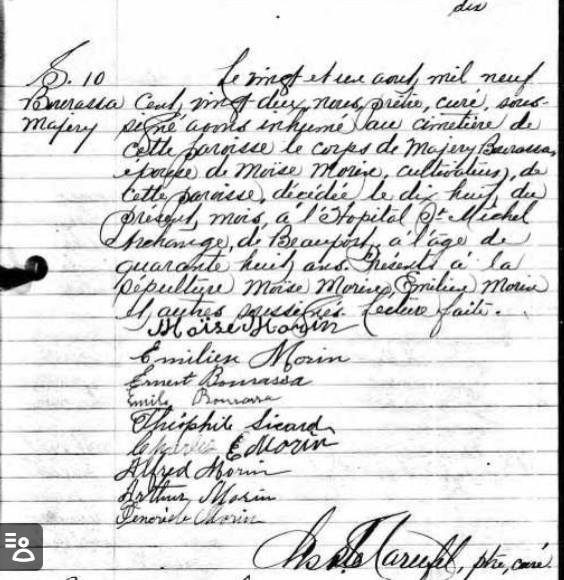 dix
S. 10
Bourassa
Majery
Le vingt et un aout, mil neuf
cent, vingt deux, nous, prêtre, curé, sous-
signé avons inhumé au cimetière de
cette paroisse le corps de Majery Bourassa,
épouse de Moïse Morin, cultivateur, de
cette paroisse, décédée le dix huit du
présent, mois, à l'Hopital St Michel
Archange, de Beauport, à l'âge de
quarante huit, ans. Présents à la
sépulture Moïse Morin, Emilien Morin
et autres soussignés. Lecture faite.
Moïse Morin
Emilien Morin
Ernest Bourassa
Emile Bourassa
Théophile Sicard
Charles E Morin
Alfred Morin
Arthur Morin
Morin
ptre, curé.